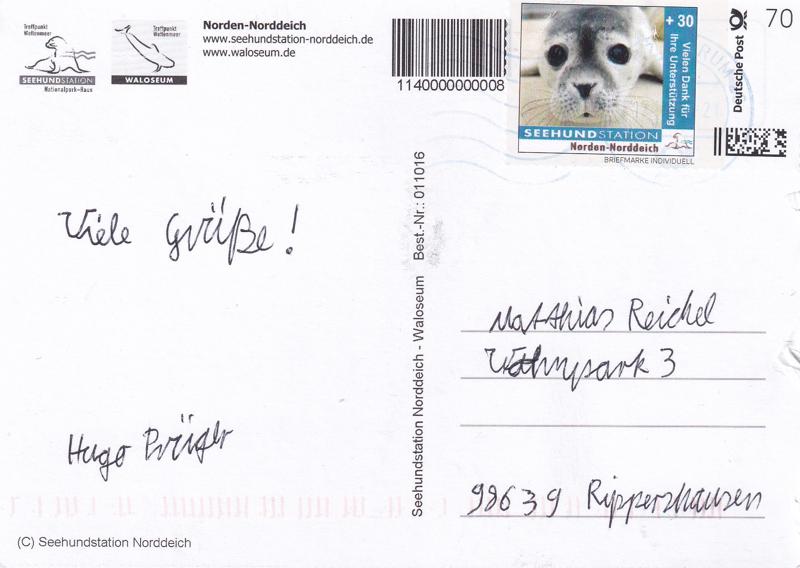 Treffpunkt
Wattenmeer
SEEHUNDSTATION
Nationalpark-Haus
Treffpunkt
Wattenmeer
WALOSEUM
Norden-Norddeich
www.seehundstation-norddeich.de
www.waloseum.de
1140000000008
+ 30
Vielen Dank für
Ihre Unterstützung
SEEHUNDSTATION
Norden-Norddeich
BRIEFMARKE INDIVIDUELL
Deutsche Post
70
Viele Grüße!
Hugo Prüger
Seehundstation Norddeich - Waloseum Best.-Nr.: 011016
Matthias Reichel
park 3
98639 Rippershausen
(C) Seehundstation Norddeich